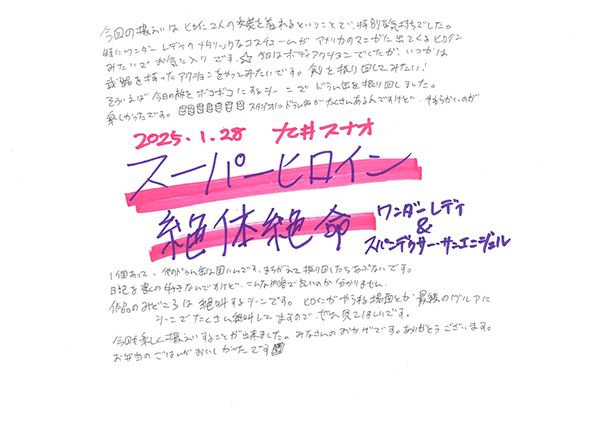 今回の撮影はヒロイン2人の衣装を着れるということで、特別な気持ちでした。
特にワンダーレディのメタリックなコスチュームがアメリカのマンガに出てくるヒロイン
みたいでお気に入りです。☆ 今回はボディアクションでしたが、いつかは
武器を持ったアクションをやってみたいです。剣を振り回してみたい!
そういえば今日の床をボコボコにするシーンでドラム缶を振り回しました。
楽しかったです。スタジオにドラム缶がたくさんあるんですけど、やわらかいのが
2025.1.28 七井スナオ
スーパーヒロイン
絶体絶命 ワンダーレディ
&
スパンデクサー・サンエンジェル
1個あって、他のドラム缶は固いんです。まちがえて振り回したらあぶないです。
日記を書くの好きなんですけど、こんな内容で良いのか分かりません。
作品のみどころは絶叫するシーンです。ヒロインがやられる場面とか最後の
シーンでたくさん絶叫してますので、ぜひ見てほしいです。
今回も楽しく撮影することが出来ました。みなさんのおかげです。ありがとうございます。
お弁当のごはんがおいしかったです